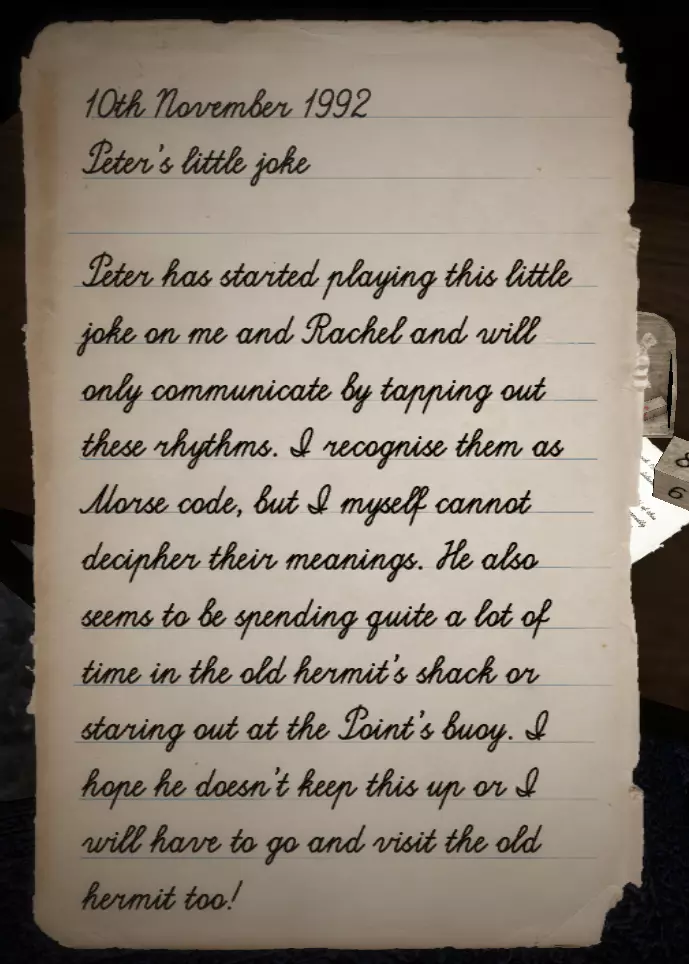 10th November 1992
Peter's little joke
Peter has started playing this little
joke on me and Rachel and will
only communicate by tapping out
these rhythms. I recognise them as
Morse code, but I myself cannot
decipher their meanings. He also
seems to be spending quite a lot of
time in the old hermit's shack or
staring out at the Point's buoy. I
hope he doesn't keep this up or I
will have to go and visit the old
hermit too!
8
6